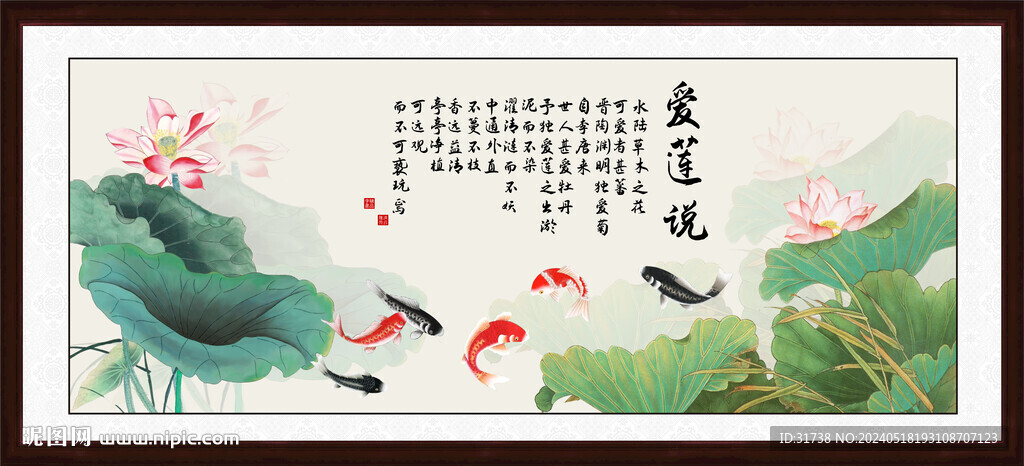 爱莲说
水陆草木之花
可爱者甚蕃
晋陶渊明独爱菊
自李唐来
世人甚爱牡丹
予独爱莲之出淤
泥而不染
濯清涟而不妖
中通外直
不蔓不枝
香远益清
亭亭净植
可远观
而不可亵玩焉
昵图网 www.nipic.com
ID:31738 NO:20240518193108707123